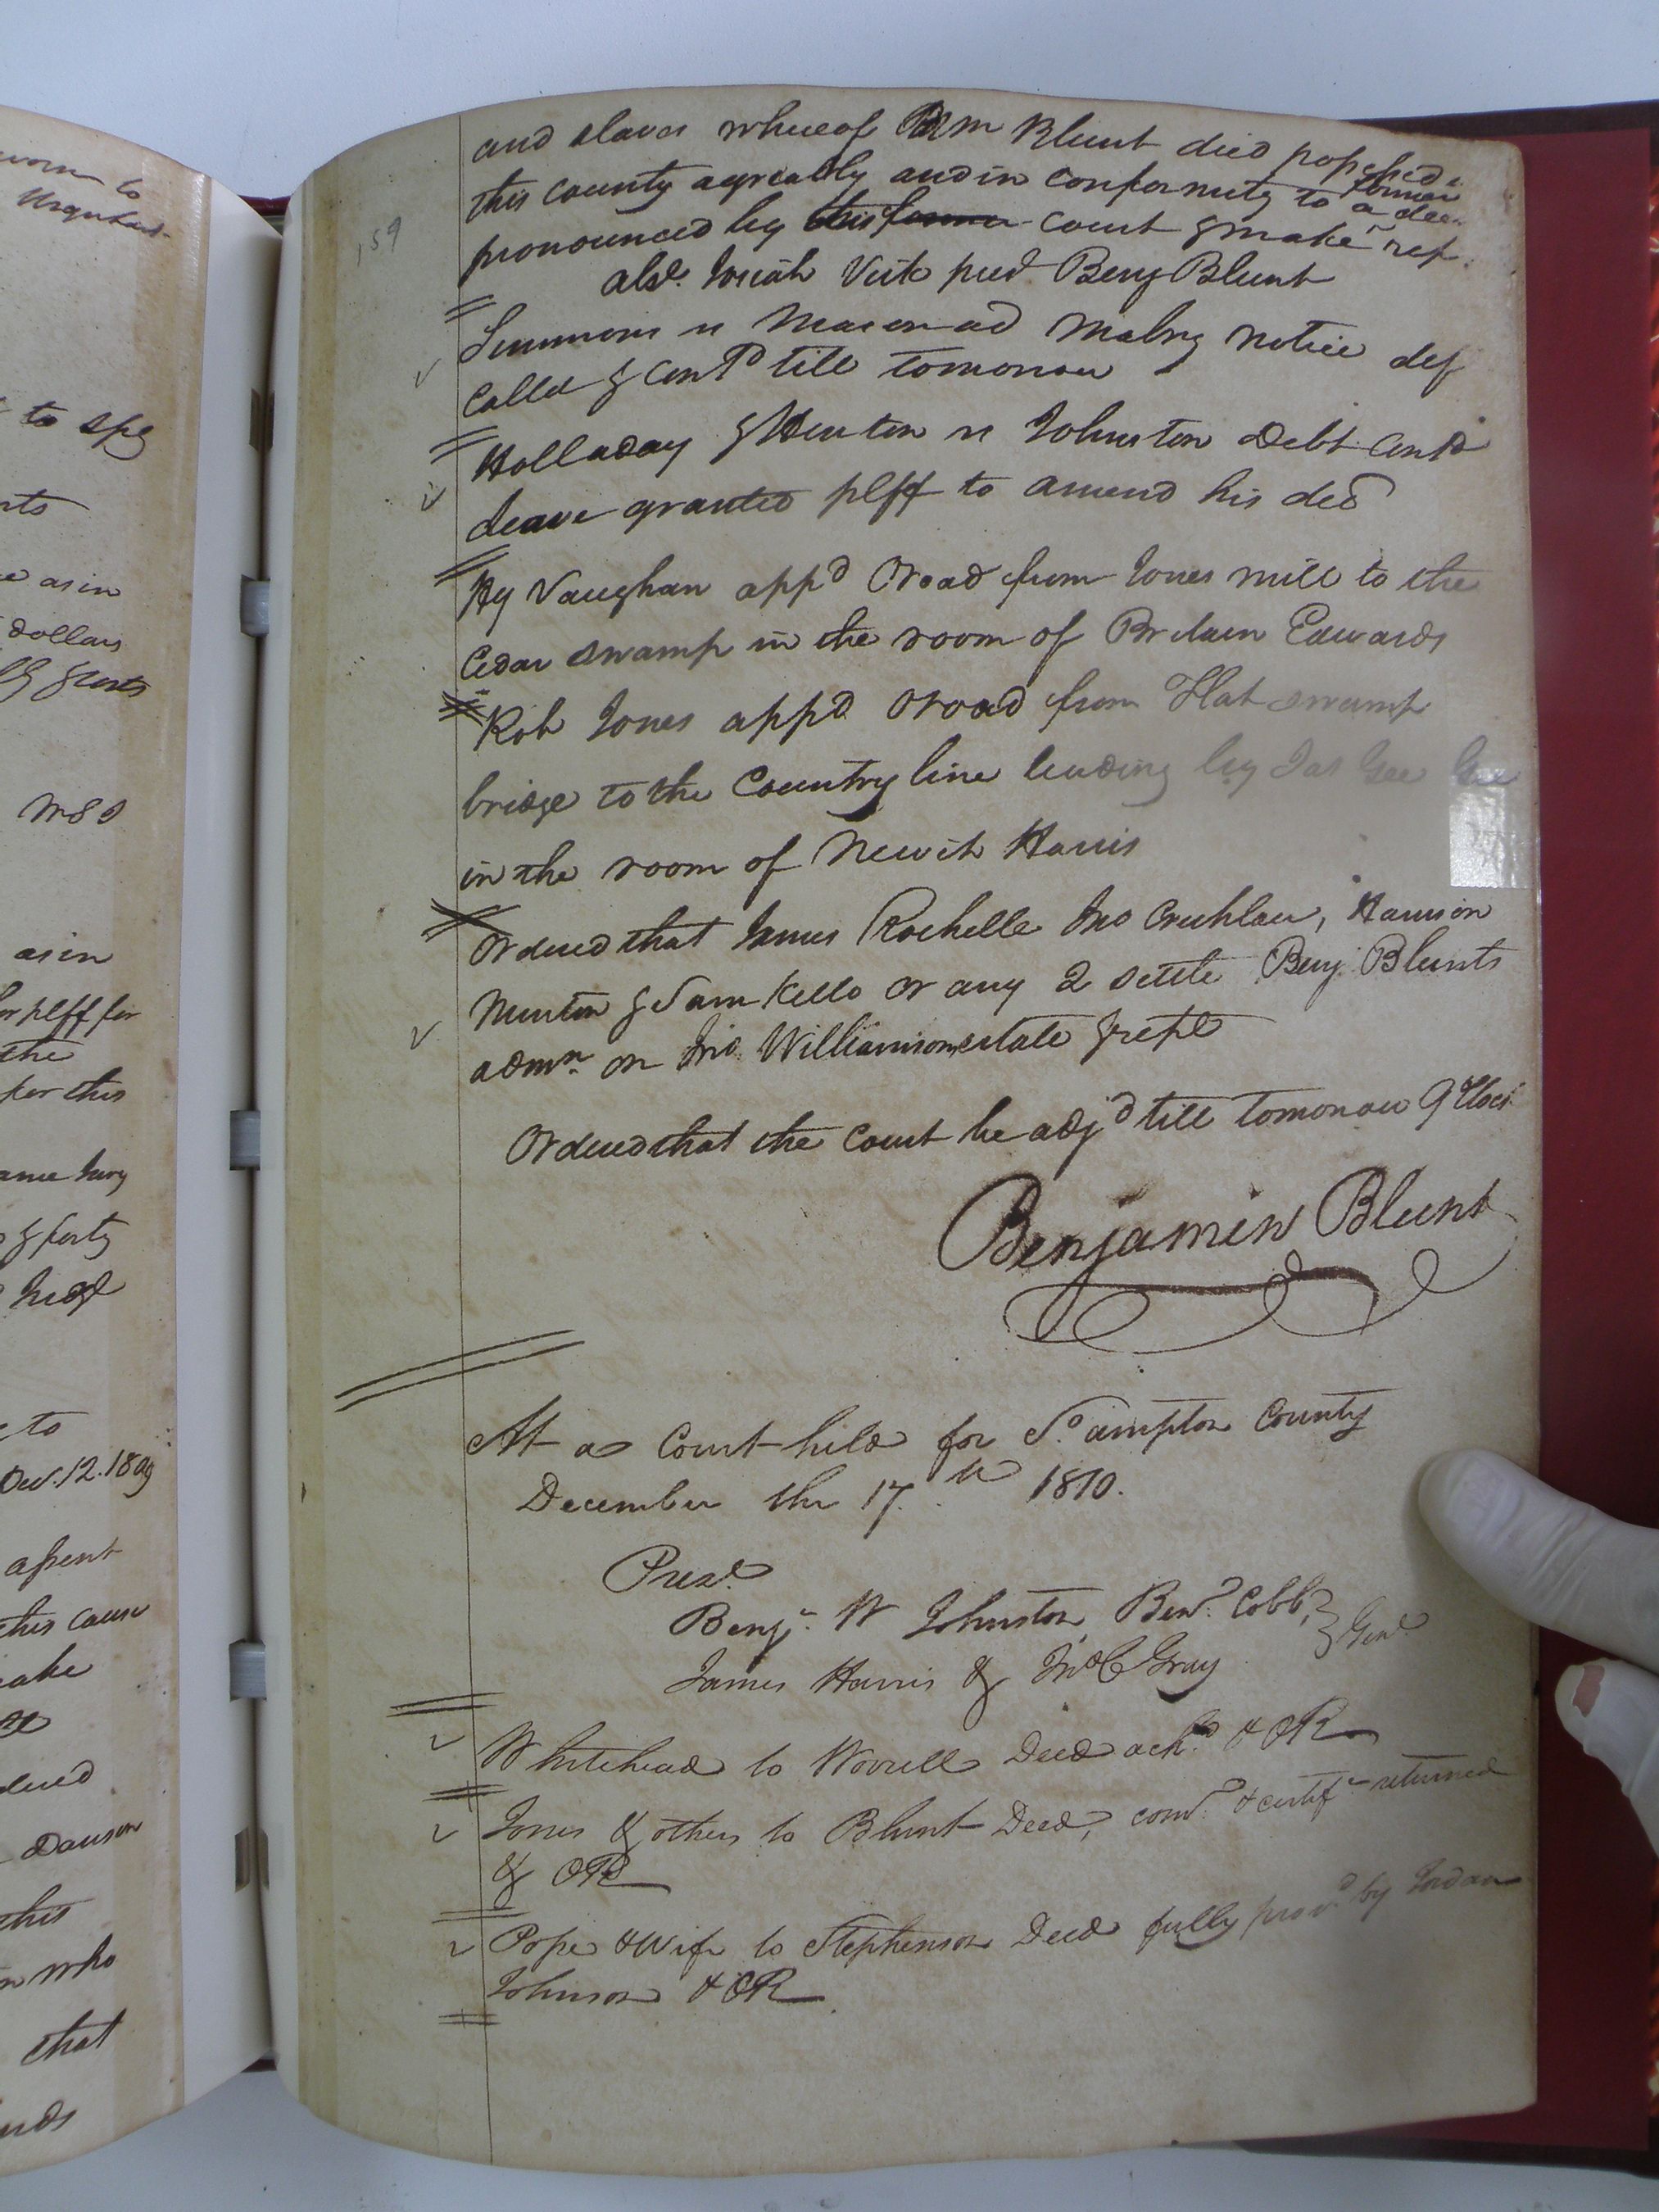 worn to
Urquhart
to spg
nts
as in
dollars
& Costs
as in
for plff for
the
for this
same Jury
& forty
Judgt
to
Dec. 12. 1809
assent
this cause
make
Dawson
this
who
that
159
and slaves whereof Wm Blunt died possessed
this county agreeably and in conformity to a former
pronounced by this former court & make rep
abst. Josiah Vick prest Benj Blunt
Simmons vs Mason ad Malrs notice def
Calld & Contd till tomorrow
Holladay & Newton vs Johnston Debt Contd
leave granted plff to amend his decl
Hy Vaughan appd O road from Jones mill to the
Cedar swamp in the room of Britain Edwards
Rob Jones appd O road from Flat swamp
bridge to the County line leading by Jas Gee
in the room of Newit Harris
Ordered that James Rochelle Jno Crichlow, Harrison
Newton & Sam Kello or any 2 settle Benj. Blunts
admn. on Jno. Williamsons estate & rept
Ordered that the Court be adjd till tomorrow 9 Clock
Benjamin Blunt
At a Court held for So.ampton County
December the 17.th 1810.
Prest.
Benja. W Johnston, Benn. Cobb,
James Harris & Jno C Gray } Gent.
Whitehead to Worrell Deed ackd. & OR
Jones & others to Blunt Deed, comn. & certife. returned
& OR
Pope & Wife to Stephenson Deed fully provd. by Jordan
Johnson & OR